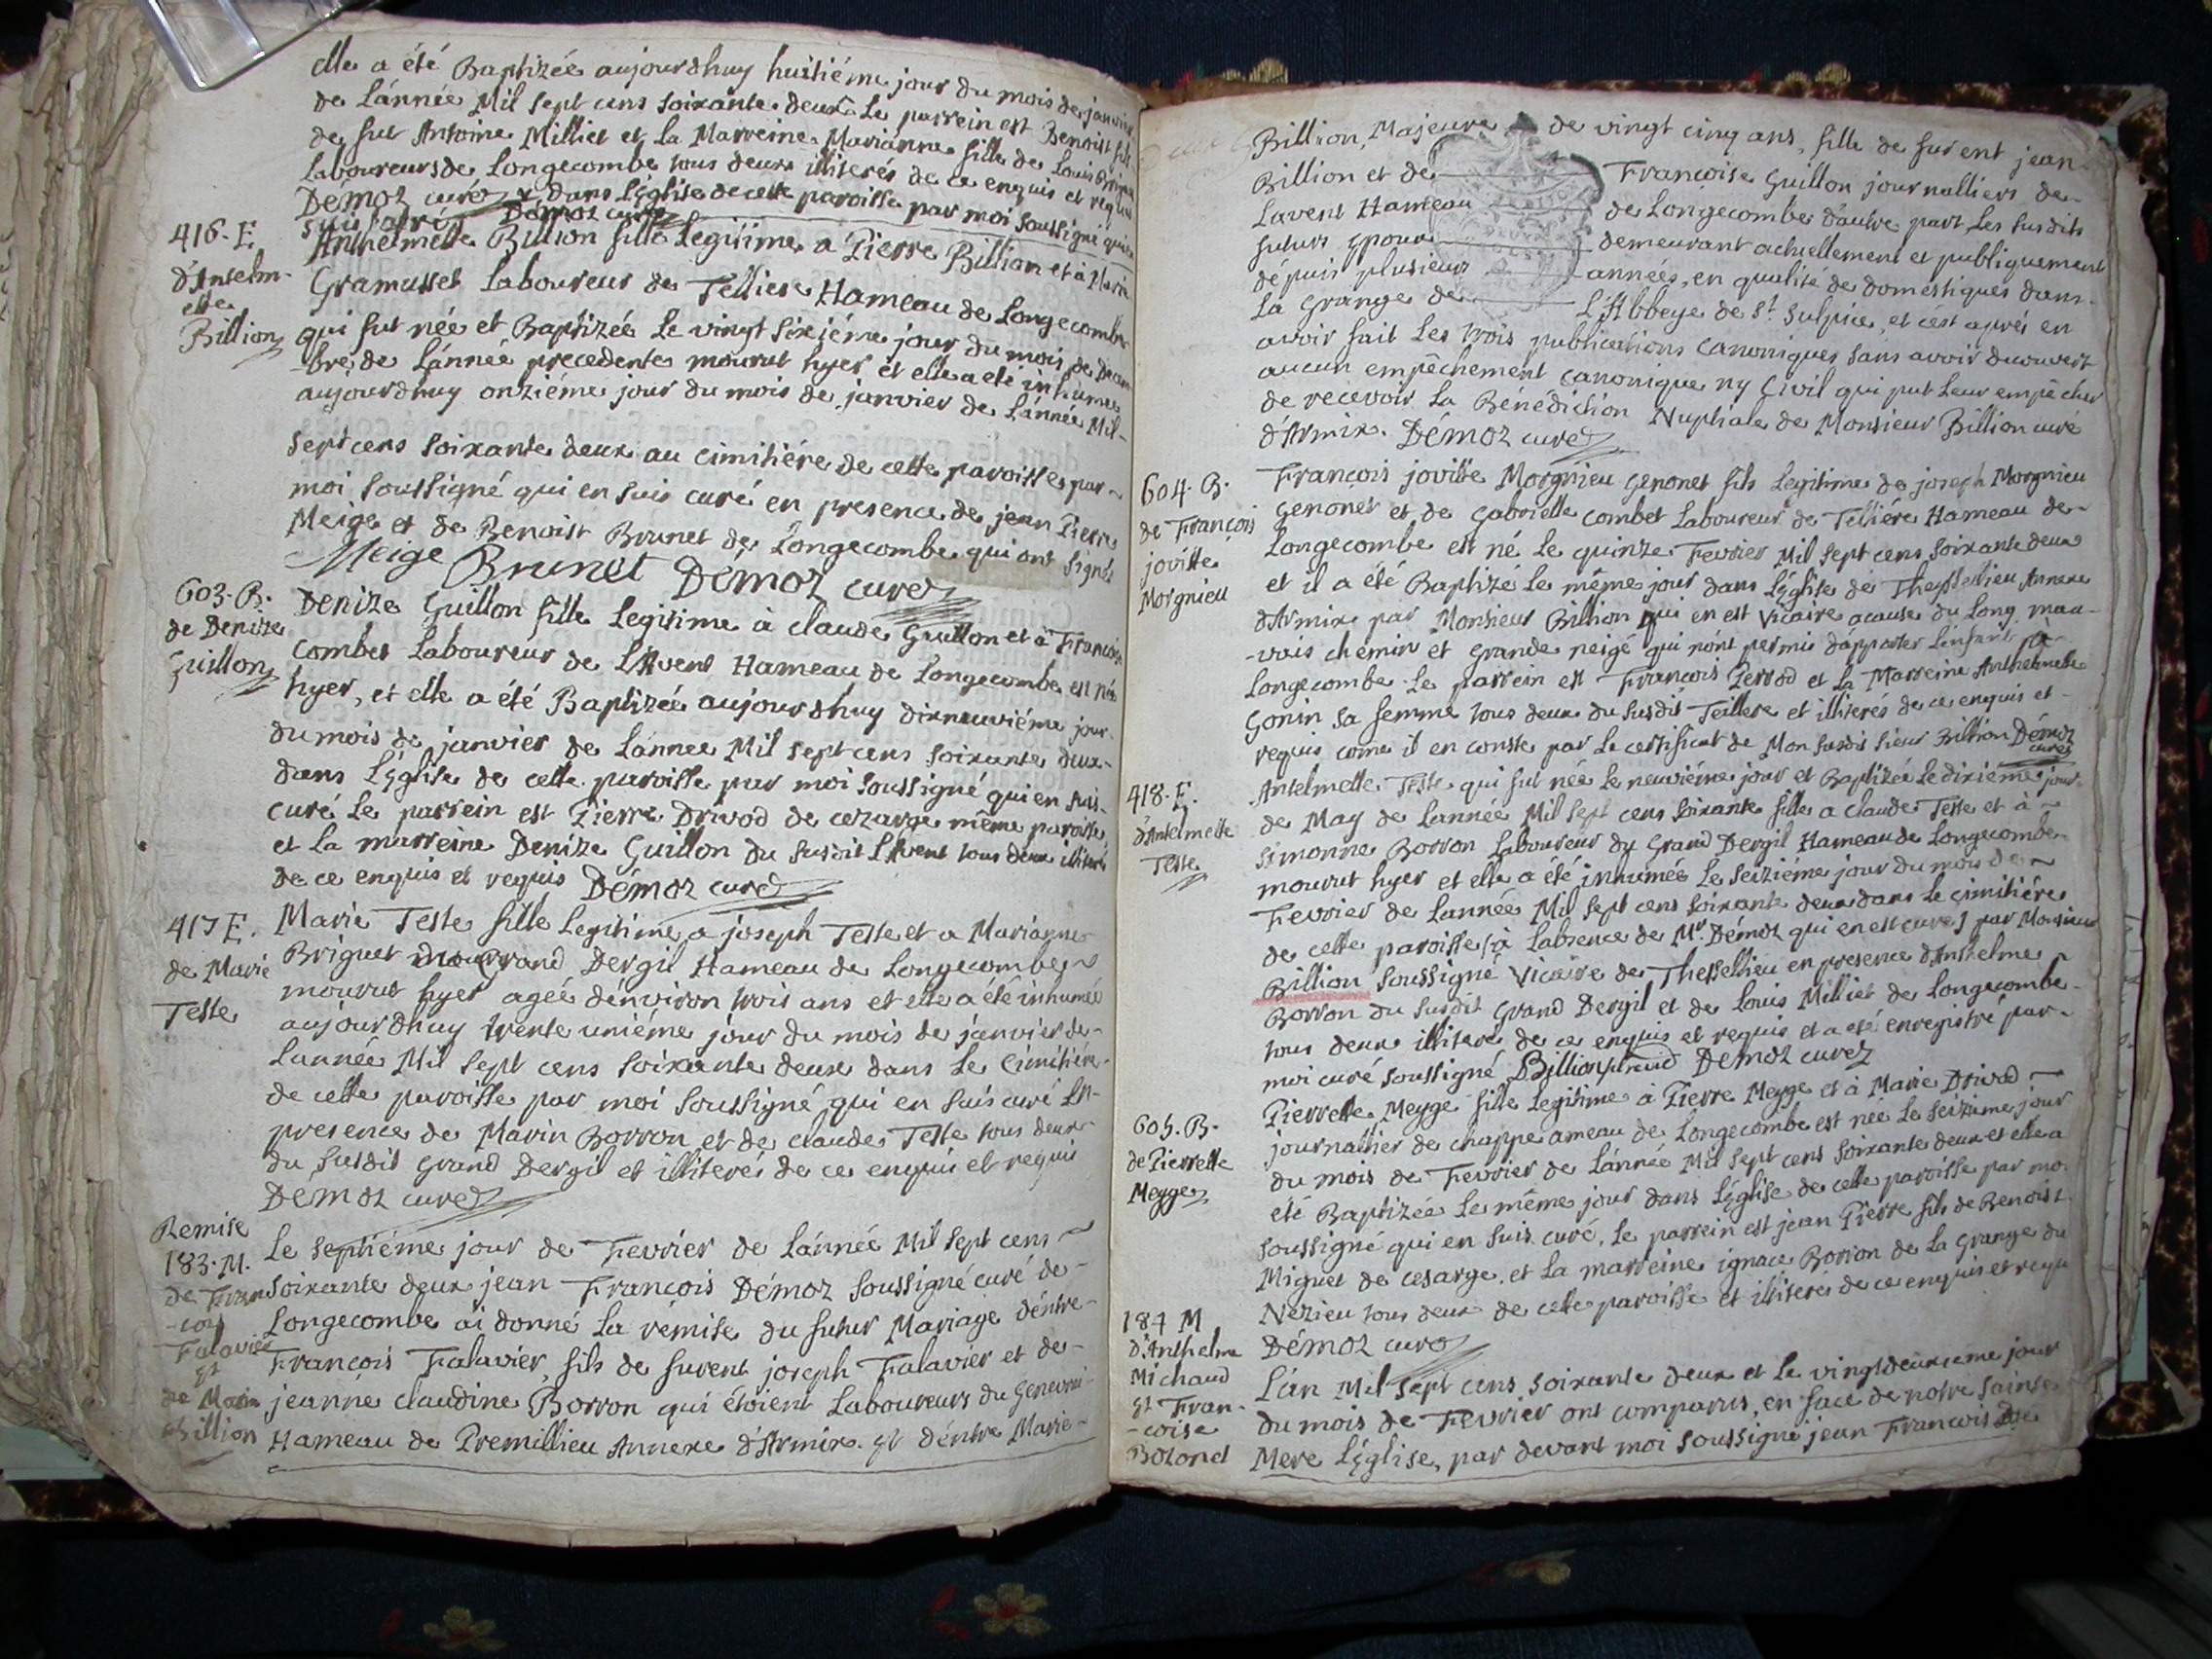 elle a été Baptizée aujourdhuy huitiéme jour du mois de janvier
de Lánnée Mil sept cens soixante deux Le parrein est Benoist fils
de fut Antoine Milliet et la Marreine Marianne fille de Louis
Laboureurs de Longecombe tous deux illiterés de ce enquis et requis
Démoz curé x dans L'église de cette paroisse par moi soussigné qui en
suis curé Démoz curé
416. E.
d'Antelm-
ette
Billion
Anthelmette Billion fille Legitime a Pierre Billion et à Marie
Gramusset Laboureur de Telliere Hameau de Longecombe
qui fut née et Baptizée Le vingt sixiéme jour du mois de Decem
-bre de Lánnée precedente mourut hyer et elle a eté inhumée
aujourdhuy onziéme jour du mois de janvier de Lánnée Mil-
sept cens soixante deux au cimitiére de cette paroisse par
moi soussigné qui en suis curé en presence de jean Pierre
Meige et de Benoist Brunet de Longecombe qui ont signé
Meige Brunet Démoz curé
603. B.
de Denize
Guillon
Denize Guillon fille Legitime à claude Guillon et à Francoise
Combet Laboureur de L'Avent Hameau de Longecombe est née
hyer, et elle a été Baptizée aujourdhuy dixneuviéme jour
du mois de janvier de Lánnee Mil sept cens soixante deux-
dans L'église de cette paroisse par moi soussigné qui en suis
curé Le parrein est Pierre Drivod de cezarge même paroisse,
et La marreine Denize Guillon du susdit L'Avent tous deux illiterés
de ce enquis et requis Démoz curé
417 E.
de Marie
Teste
Marie Teste fille Legitime a joseph Teste et a Marianne
Briguet du Grand Dergil Hameau de Longecombe
mourut hyer agée dénviron trois ans et elle a été inhumée
aujourdhuy trente uniéme jour du mois de janvier de-
Lánnée Mil sept cens soixante deux dans Le Cimitiére
de cette paroisse par moi soussigné qui en suis curé En-
presence de Marin Borron et de claude Teste tous deux
du susdit Grand Dergil et illiterés de ce enquis et requis
Démoz curé
Remise
183. M.
de Fran
-cois
Falavier
Et
de Marie
Billion
Le septiéme jour de Fevrier de Lánnée Mil sept cens
soixante deux jean François Démoz soussigné curé de-
Longecombe ai donné La rémise du futur Mariage déntre-
François Falavier, fils de furent joseph Falavier et de-
jeanne Claudine Borron qui étoient Laboureurs du Genevrai-
Hameau de Premillieu Annexe d'Armix. Et déntre Marie-
Billion, Majeure de vingt cinq ans, fille de furent jean
Billion et de Françoise Guillon journalliers de-
Lavent Hameau de Longecombe dautre part, Les susdits
futurs Epoux demeurant actuellement et publiquement
dépuis plusieurs années, en qualité de domestiques dans-
La Grange de L'Abbeye de St. Sulpice, et cést aprés en
avoir fait Les trois publications canoniques sans avoir decouvert
aucun empêchement canonique ny Civil qui put Leur empêcher
de recevoir La Bénédiction Nuptiale de Monsieur Billion curé
d'Armix. Démoz curé
604. B.
de François
jovitte
Morgnieu
François jovitte Morgnieu Genonet fils Legitime de joseph Morgnieu
Genonet et de Gabrielle Combet Laboureur de Telliére Hameau de-
Longecombe est né Le quinze Fevrier Mil sept cens soixante deux
et il a été Baptizé Le même jour dans L'église de Thesellieu Annexe
d'Armix par Monsieur Billion qui en est Vicaire acause du Long mau-
-vais chemin et grande neige qui nónt permis dápporter Lénfant à-
Longecombe. Le parrein est François Perrod et La Marreine Anthelmette
Gonin sa femme tous deux du susdit Teillere et illiterés de ce enquis et-
requis come il en conste par Le certificat de Mon susdit sieur Billion Démoz
curé
418. E.
d'Antelmette
Teste
Antelmette Teste qui fut née Le neuviéme jour et Baptizée Le dixiéme jour
de May de Lannée Mil sept cens soixante fille a claude Teste et à
Simonne Borron Laboureur du Grand Dergil Hameau de Longecombe
mourut hyer et elle a été inhumée Le seiziéme jour du mois de
Fevrier de Lannée Mil sept cens soixante deux dans Le cimitiére
de cette paroisse (à Labsence de Mr. Démoz qui en est curé) par Monsieur
Billion soussigné Vicaire de Thesellieu en presence d'Antelme
Borron du susdit Grand Dergil et de Louis Milliet de Longecombe-
tous deux illiterés de ce enquis et requis et a eté enregistré par
moi curé soussigné Billion Démoz curé
605. B.
de Pierrette
Meyge
Pierrette Meyge fille Legitime à Pierre Meyge et à Marie Drivod
journallier de chappe ameau de Longecombe est née Le seizieme jour
du mois de Fevrier de Lánnée Mil sept cens soixante deux et elle a
eté Baptizée Le même jour dans L'église de cette paroisse par moi
soussigné qui en suis curé. Le parrein est jean Pierre fils de Benoist
Miguet de cesarge. et La marreine ignace Borron de La Grange du
Nézieu tous deux de cette paroisse et illiterés de ce enquis et requis
Démoz curé
184 M
d'Anthelme
Michaud
Et Fran-
-coise
Bozonet
L'an Mil sept cens soixante deux et Le vingtdeuxieme jour
du mois de Fevrier ont comparus, en face de notre sainte
Mere L'église, par devant moi soussigné jean Francois Dé